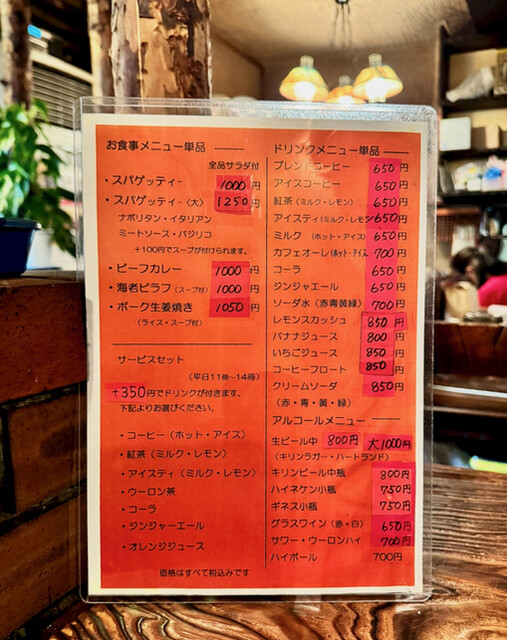 お食事メニュー単品
全品サラダ付
・スパゲッティー 1000円
・スパゲッティー(大) 1250円
ナポリタン・イタリアン
ミートソース・バジリコ
+100円でスープが付けられます。
・ビーフカレー 1000円
・海老ピラフ(スープ付) 1000円
・ポーク生姜焼き 1050円
(ライス・スープ付)
サービスセット
(平日11時~14時)
+350円でドリンクが付きます。
下記よりお選びください。
・コーヒー(ホット・アイス)
・紅茶(ミルク・レモン)
・アイスティ(ミルク・レモン)
・ウーロン茶
・コーラ
・ジンジャーエール
・オレンジジュース
価格はすべて税込みです
ドリンクメニュー単品
ブレンドコーヒー 650円
アイスコーヒー 650円
紅茶(ミルク・レモン) 650円
アイスティ(ミルク・レモン) 650円
ミルク (ホット・アイス) 650円
カフェオーレ(ホット・アイス) 700円
コーラ 650円
ジンジャエール 650円
ソーダ水(赤青黄緑) 700円
レモンスカッシュ 850円
バナナジュース 800円
いちごジュース 850円
コーヒーフロート 850円
クリームソーダ 850円
(赤・青・黄・緑)
アルコールメニュー
生ビール中 800円 大1000円
(キリンラガー・ハートランド)
キリンビール中瓶 800円
ハイネケン小瓶 750円
ギネス小瓶 750円
グラスワイン(赤・白) 650円
サワー・ウーロンハイ 700円
ハイボール 700円